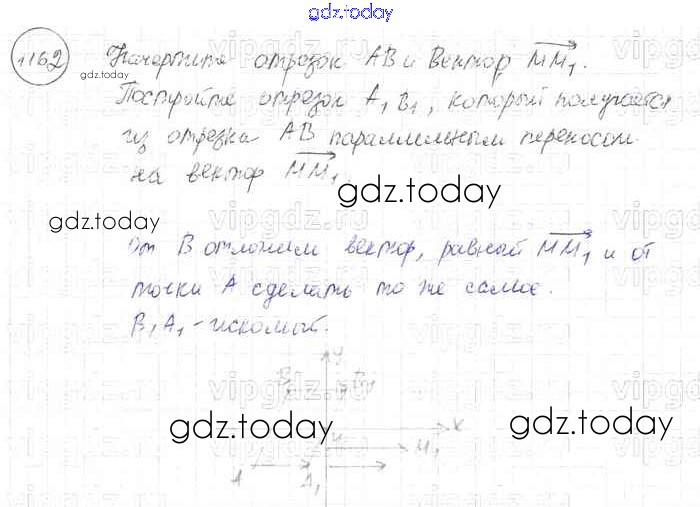 gdz.today
1162 Начертите отрезок AB и вектор MM₁.
gdz.today
Постройте отрезок A₁B₁, который получается
из отрезка AB параллельным переносом
на вектор MM₁.
gdz.today
gdz.today
От B отложим вектор, равный MM₁ и от
точки A сделать то же самое.
B₁A₁ - искомый.
y
B B₁
gdz.today
gdz.today
x
M M₁
gdz.today
A A₁